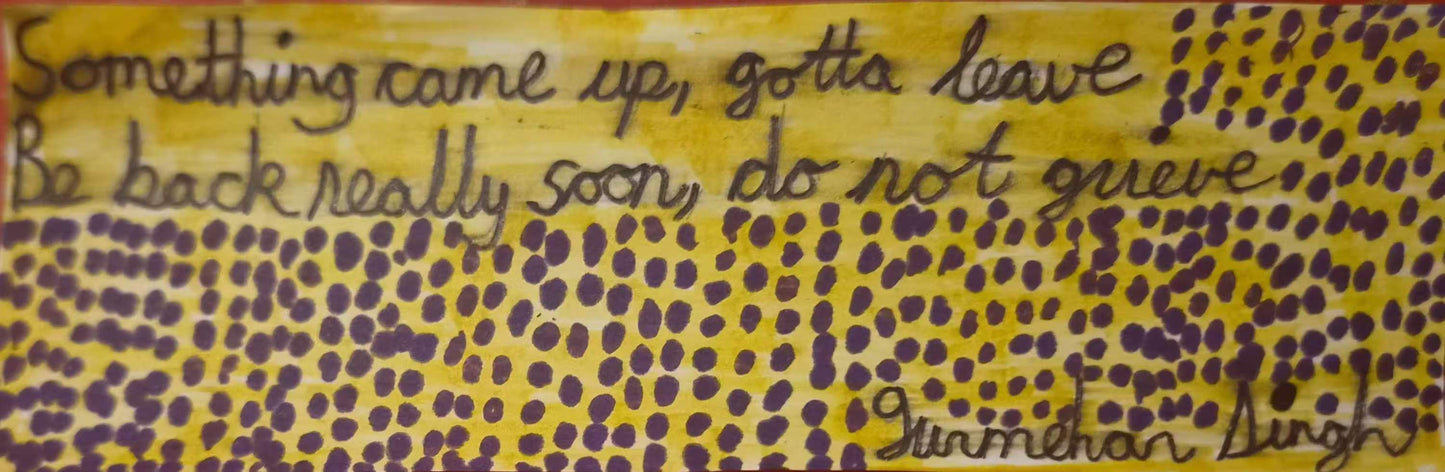 Something came up, gotta leave
Be back really soon, do not grieve
Gurmehar Singh